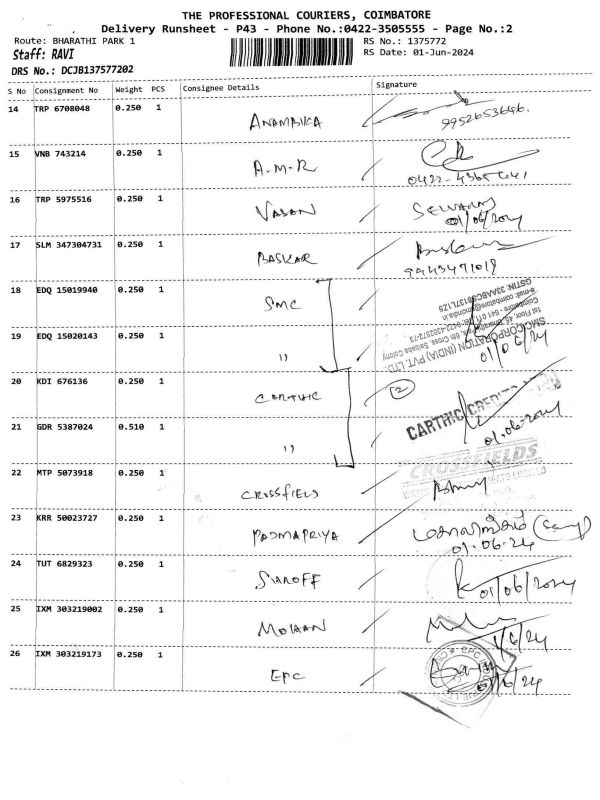 THE PROFESSIONAL COURIERS, COIMBATORE
Delivery Runsheet - P43 - Phone No.:0422-3505555 - Page No.:2
Route: BHARATHI PARK 1
RS No.: 1375772
Staff: RAVI
RS Date: 01-Jun-2024
DRS No.: DCJB137577202
S No Consignment No Weight PCS Consignee Details Signature
14 TRP 6708048 0.250 1 ANAMBIKA 9952653646.
15 VNB 743214 0.250 1 A-M-R
16 TRP 5975516 0.250 1 VASAN 01/06/2024
17 SLM 347304731 0.250 1 BASKAR 9943471019
18 EDQ 15019940 0.250 1 SMC
SMC CORPORATION (INDIA) PVT. LTD.
19 EDQ 15020143 0.250 1 ,, 01/06/24
20 KDI 676136 0.250 1 CARTHIC 2
CARTHIC CREDIT
21 GDR 5387024 0.510 1 ,, 01.06.2024
CROSSFIELDS
22 MTP 5073918 0.250 1 CROSSFIELD
23 KRR 50023727 0.250 1 PADMAPRIYA 01.06.24
24 TUT 6829323 0.250 1 SHROFF 01/06/2024
25 IXM 303219002 0.250 1 MOHAN 1/6/24
26 IXM 303219173 0.250 1 EPC